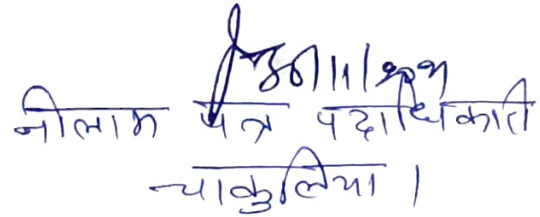 नीलाम पत्र पदाधिकारी
चाकुलिया।